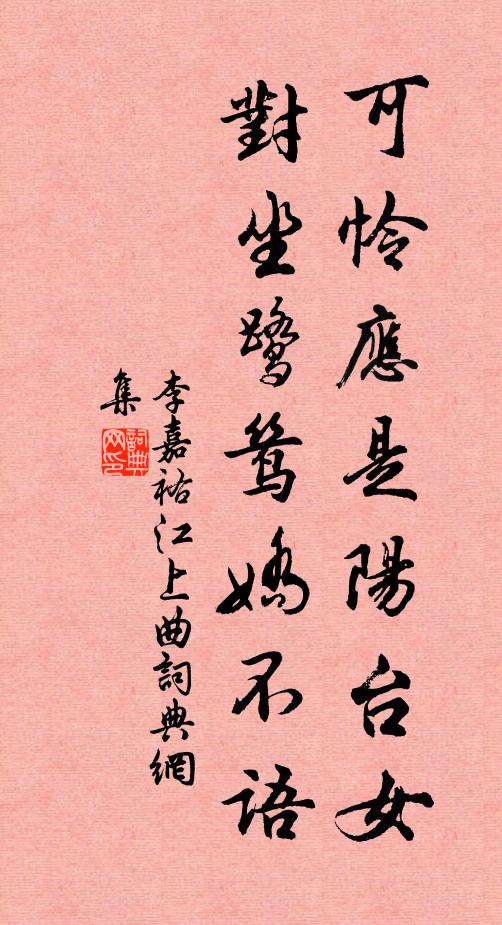 可怜應是陽台女
對坐鷺鶿嬌不語
李嘉祐江上曲詞典網
集
詞典
网印